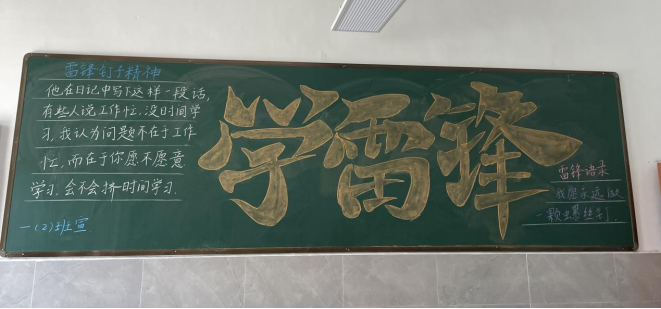 雷锋钉子精神
他在日记中写下这样一段话,
有些人说工作忙、没时间学
习,我认为问题不在于工作
忙,而在于你愿不愿意
学习,会不会挤时间学习.
一(2)班宣
学雷锋
雷锋语录
我愿永远做
一颗螺丝钉.